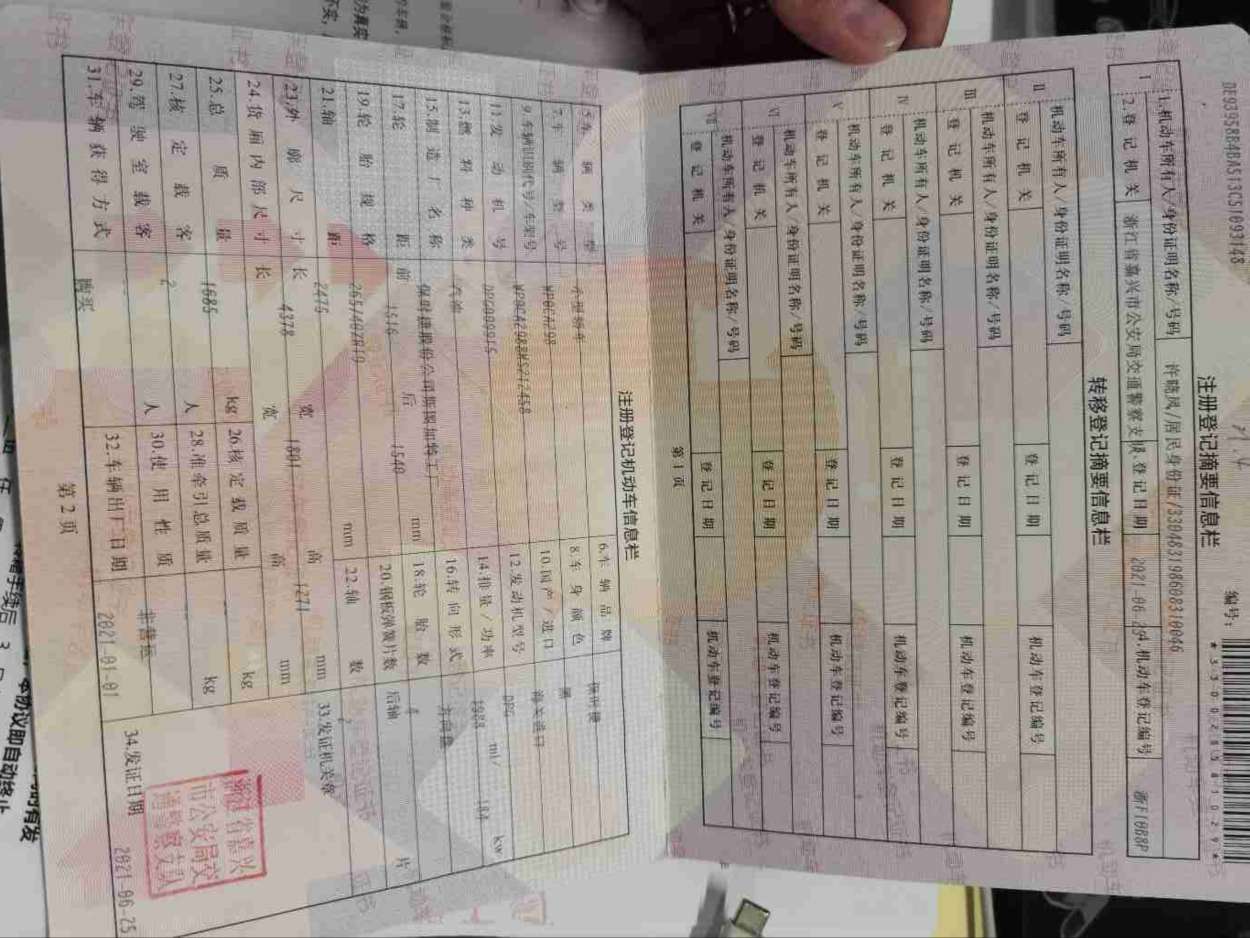 DE93958B4BA513C51093148
编号:
*330028581029*
注册登记摘要信息栏
I 1.机动车所有人/身份证明名称/号码 许晓凤/居民身份证/330403198608310046
2.登记机关 浙江省嘉兴市公安局交通警察支队 3.登记日期 2021-06-25 4.机动车登记编号 浙F10B8P
转移登记摘要信息栏
II 机动车所有人/身份证明名称/号码
登记机关 登记日期 机动车登记编号
III 机动车所有人/身份证明名称/号码
登记机关 登记日期 机动车登记编号
IV 机动车所有人/身份证明名称/号码
登记机关 登记日期 机动车登记编号
V 机动车所有人/身份证明名称/号码
登记机关 登记日期 机动车登记编号
VI 机动车所有人/身份证明名称/号码
登记机关 登记日期 机动车登记编号
VII 机动车所有人/身份证明名称/号码
登记机关 登记日期 机动车登记编号
第1页
注册登记机动车信息栏
5.车辆类型 小型轿车 6.车辆品牌 保时捷
7.车辆型号 WP0CA298 8.车身颜色 黑
9.车辆识别代号/车架号 WP0CA2988MS212458 10.国产/进口 海关进口
11.发动机号 DPG009915 12.发动机型号 DPG
13.燃料种类 汽油 14.排量/功率 1988 ml/ 184 kw
15.制造厂名称 保时捷股份公司斯图加特工厂 16.转向形式 方向盘
17.轮距 前 1516 后 1540 mm 18.轮胎数 4
19.轮胎规格 265/40ZR19 20.钢板弹簧片数 后轴 片
21.轴距 2475 mm 22.轴数 2
23.外廓尺寸 长 4378 宽 1801 高 1271 mm 33.发证机关章
24.货厢内部尺寸 长 宽 高 mm
25.总质量 1685 kg 26.核定载质量 kg
27.核定载客 2 人 28.准牵引总质量 kg
29.驾驶室载客 人 30.使用性质 非营运
31.车辆获得方式 购买 32.车辆出厂日期 2021-01-01 34.发证日期 2021-06-25
浙江省嘉兴
市公安局交
通警察支队
第2页